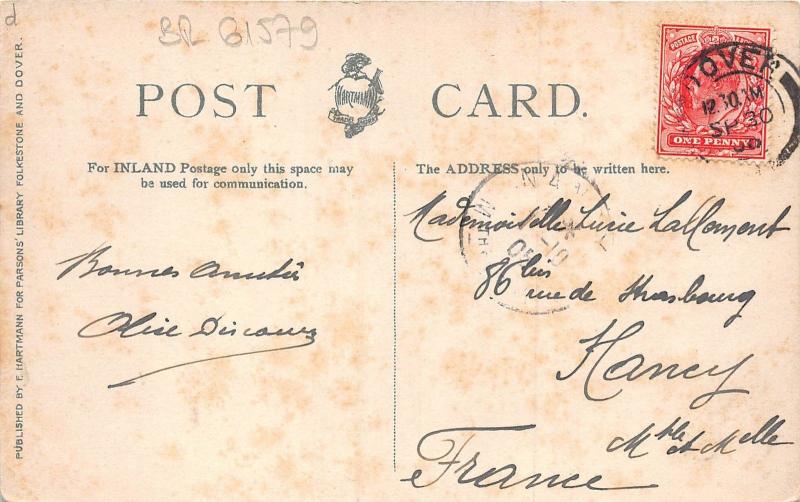 d
BR 61579
PUBLISHED BY F. HARTMANN FOR PARSONS' LIBRARY FOLKESTONE AND DOVER.
POST CARD.
HARTMANN
TRADE MARK
For INLAND Postage only this space may
be used for communication.
The ADDRESS only to be written here.
POSTAGE
ONE PENNY
DOVER
12.30.PM
SP 30
NANCY
Bonnes Amitiés
Alise
Mademoiselle Lucie Lallemont
86 bis rue de Strasbourg
Nancy
Mthe et Mlle
France